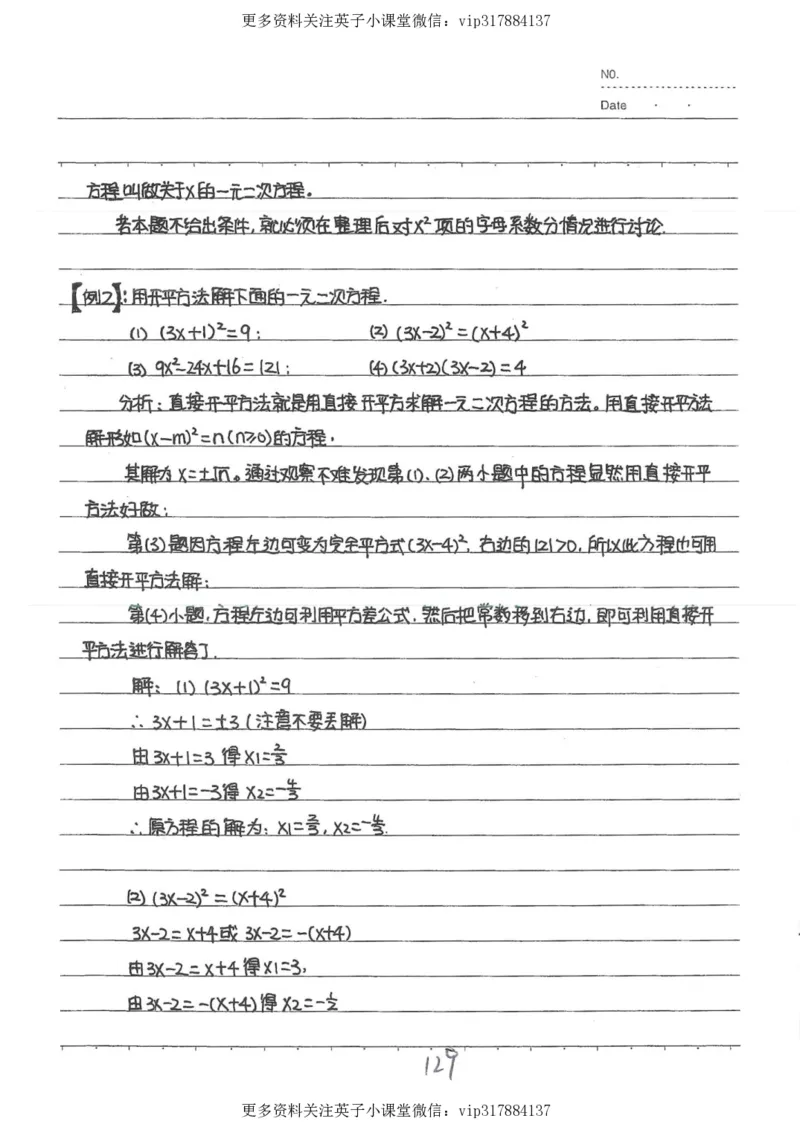 更多资料关注英子小课堂微信：vip317884137
NO.
Date
方程叫做关于X的一元二次方程。
若本题不给出条件,就必须在整理后对X²项的字母系数分情况进行讨论.
【例2】:用开平方法解下面的一元二次方程.
(1) (3X+1)²=9; (2) (3X-2)²=(X+4)²
(3) 9X²-24X+16=121; (4) (3X+2)(3X-2)=4
分析:直接开平方法就是用直接开平方求解一元二次方程的方法。用直接开平方法
解形如(X-m)²=n(n≥0)的方程,
其解为X=±√n。通过观察不难发现第(1)、(2)两小题中的方程显然用直接开平
方法好做;
第(3)题因方程左边可变为完全平方式(3X-4)²,右边的121>0,所以此方程也可用
直接开平方法解;
第(4)小题,方程左边可利用平方差公式,然后把常数移到右边,即可利用直接开
平方法进行解答了.
解: (1) (3X+1)²=9
∴ 3X+1=±3 (注意不要丢解)
由3X+1=3 得X1=2/3
由3X+1=-3得 X2=-4/3
∴原方程的解为: X1=2/3, X2=-4/3.
(2) (3X-2)²=(X+4)²
3X-2=X+4或 3X-2=-(X+4)
由3X-2=X+4得X1=3,
由3X-2=-(X+4)得 X2=-1/2
129
更多资料关注英子小课堂微信：vip317884137